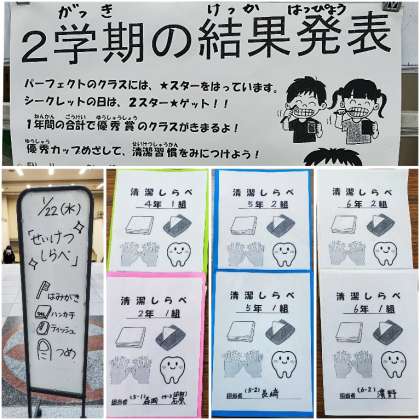 がっき けっか はっぴょう
2学期の結果発表
パーフェクトのクラスには、★スターをはっています。
シークレットの日は、2スター★ゲット！！
ねんかん ごうけい ゆうしゅうしょう
1年間の合計で優秀賞のクラスがきまるよ！
ゆうしょう せいけつしゅうかん
優秀カップめざして、清潔習慣をみにつけよう！
1/22(水)
「せいけつ
しらべ」
はみがき
ハンカチ
ティッシュ
つめ
清潔しらべ
4年 1組
清潔しらべ
5年 2組
清潔しらべ
6年 2組
清潔しらべ
2年 1組
清潔しらべ
5年 1組
担当者 (5-2) 長崎
清潔しらべ
6年 1組
担当者 (6-2) 濱野